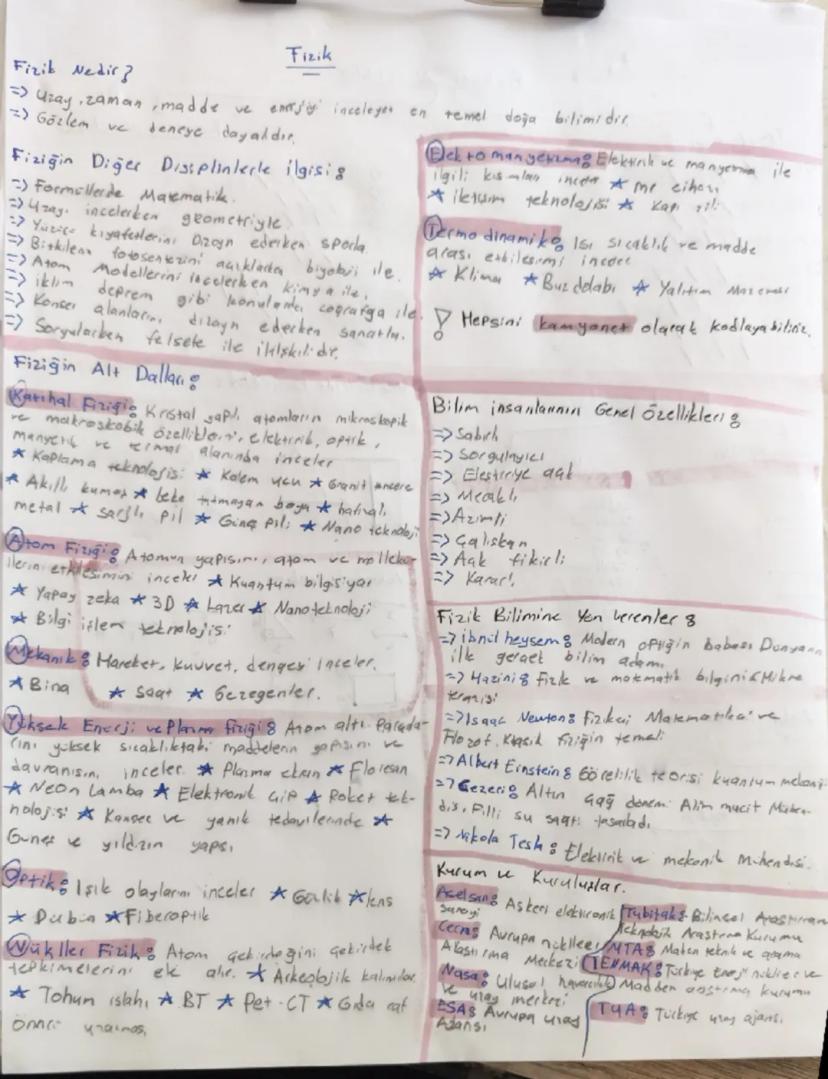 Fizik
Fizik Nedir?
=> Uzay, zaman, madde ve enerjiyi inceleyen en temel doğa bilimidir.
=> Gözlem ve deneye dayalıdır.
Fiziğin Diğer Disiplinlerle ilgisi:
=> Formüllerde Matematik.
=> Uzayı incelerken geometriyle
=> Yüzücü kıyafetlerini Dizayn ederken sporla
=> Bitkilerin fotosentezini açıklarken biyoloji ile.
=> Atom Modellerini incelerken kimya ile,
=> iklim deprem gibi konularda coğrafya ile.
=> Konser alanlarını dizayn ederken sanatla.
=> Sorgularken felsefe ile ilişkilidir.
Fiziğin Alt Dalları:
Katıhal Fiziği: Kristal yapılı atomların mikroskopik
ve makroskobik özelliklerini, elektirik, optik,
manyetik ve termal alanında inceler
* Kaplama teknolojisi * Kalem ucu * Granit tencere
* Akıllı kumaş * leke tutmayan boya * hafızalı
metal * şarjlı pil * Güneş Pili * Nano teknoloji
Atom Fiziği: Atomun yapısını, atom ve molekül
lerin etkileşimini inceler * Kuantum bilgisiyar
* Yapay zeka * 3D * Lazer * Nanoteknoloji
* Bilgi işlem teknolojisi
Mekanik: Hareket, kuvvet, dengeyi inceler.
* Bina * Saat * Gezegenler.
Yüksek Enerji ve Plazma Fiziği: Atom altı
yüksek sıcaklıktaki maddelerin yapısını ve
davranışını inceler. * Plazma ekran * Floresan
* Neon Lamba * Elektronik Çip * Roket tek-
nolojisi * Kanser ve yanık tedavilerinde *
Güneş ve yıldızın yapısı
Optik: Işık olaylarını inceler * Gözlük * lens
* Dürbün * Fiberoptik
Nükller Fizik: Atom çekirdeğini çekirdek
tepkimelerini ele alır. * Arkeolojik kalıntılar
* Tohum ıslahı * BT * Pet-CT * Gıda raf
ömrü uzatması
Elektromanyetizma: Elektirik ve manyetizma ile
ilgili kısımları inceler * mr cihazı
* iletişim teknolojisi * Kapı zili
Termodinamik: Isı sıcaklık ve madde
arası etkileşimi inceler
* Klima * Buzdolabı * Yalıtım Malzemesi
! Hepsini kamyonet olarak kodlayabiliriz.
Bilim insanlarının Genel Özellikleri:
=> Sabırlı
=> Sorgulayıcı
=> Eleştiriye açık
=> Meraklı
=> Azimli
=> Çalışkan
=> Açık fikirli
=> Kararlı
Fizik Bilimine Yön verenler:
=> ibnül heysem: Modern optiğin babası Dünyanın
ilk gerçek bilim adamı
=> Hazini: Fizik ve matematik bilgini
terazisi
=> Isaac Newton: Fizikçi Matematikçi ve
Filozof. Klasik fiziğin temeli
=> Albert Einstein: Görelilik teorisi kuantum mekaniği
=> Cezeri: Altın çağ dönemi Alim mucit Mühen-
disi, Filli su saati tasarladı
=> Nikola Tesla: Elektirik ve mekanik Mühendisi.
Kurum ve Kuruluşlar.
Aselsan: Askeri elektronik
sanayi
Cern: Avrupa nükleer
Araştırma Merkezi
Nasa: Ulusal havacılık
ve uzay merkezi
ESA: Avrupa uzay
Ajansı
Tübitak: Bilimsel Araştırma
Teknolojik Araştırma Kurumu
MTA: Maden teknik ve arama
TENMAK: Türkiye Enerji nükleer ve
Madden araştırma kurumu
TUA: Türkiye uzay ajansı